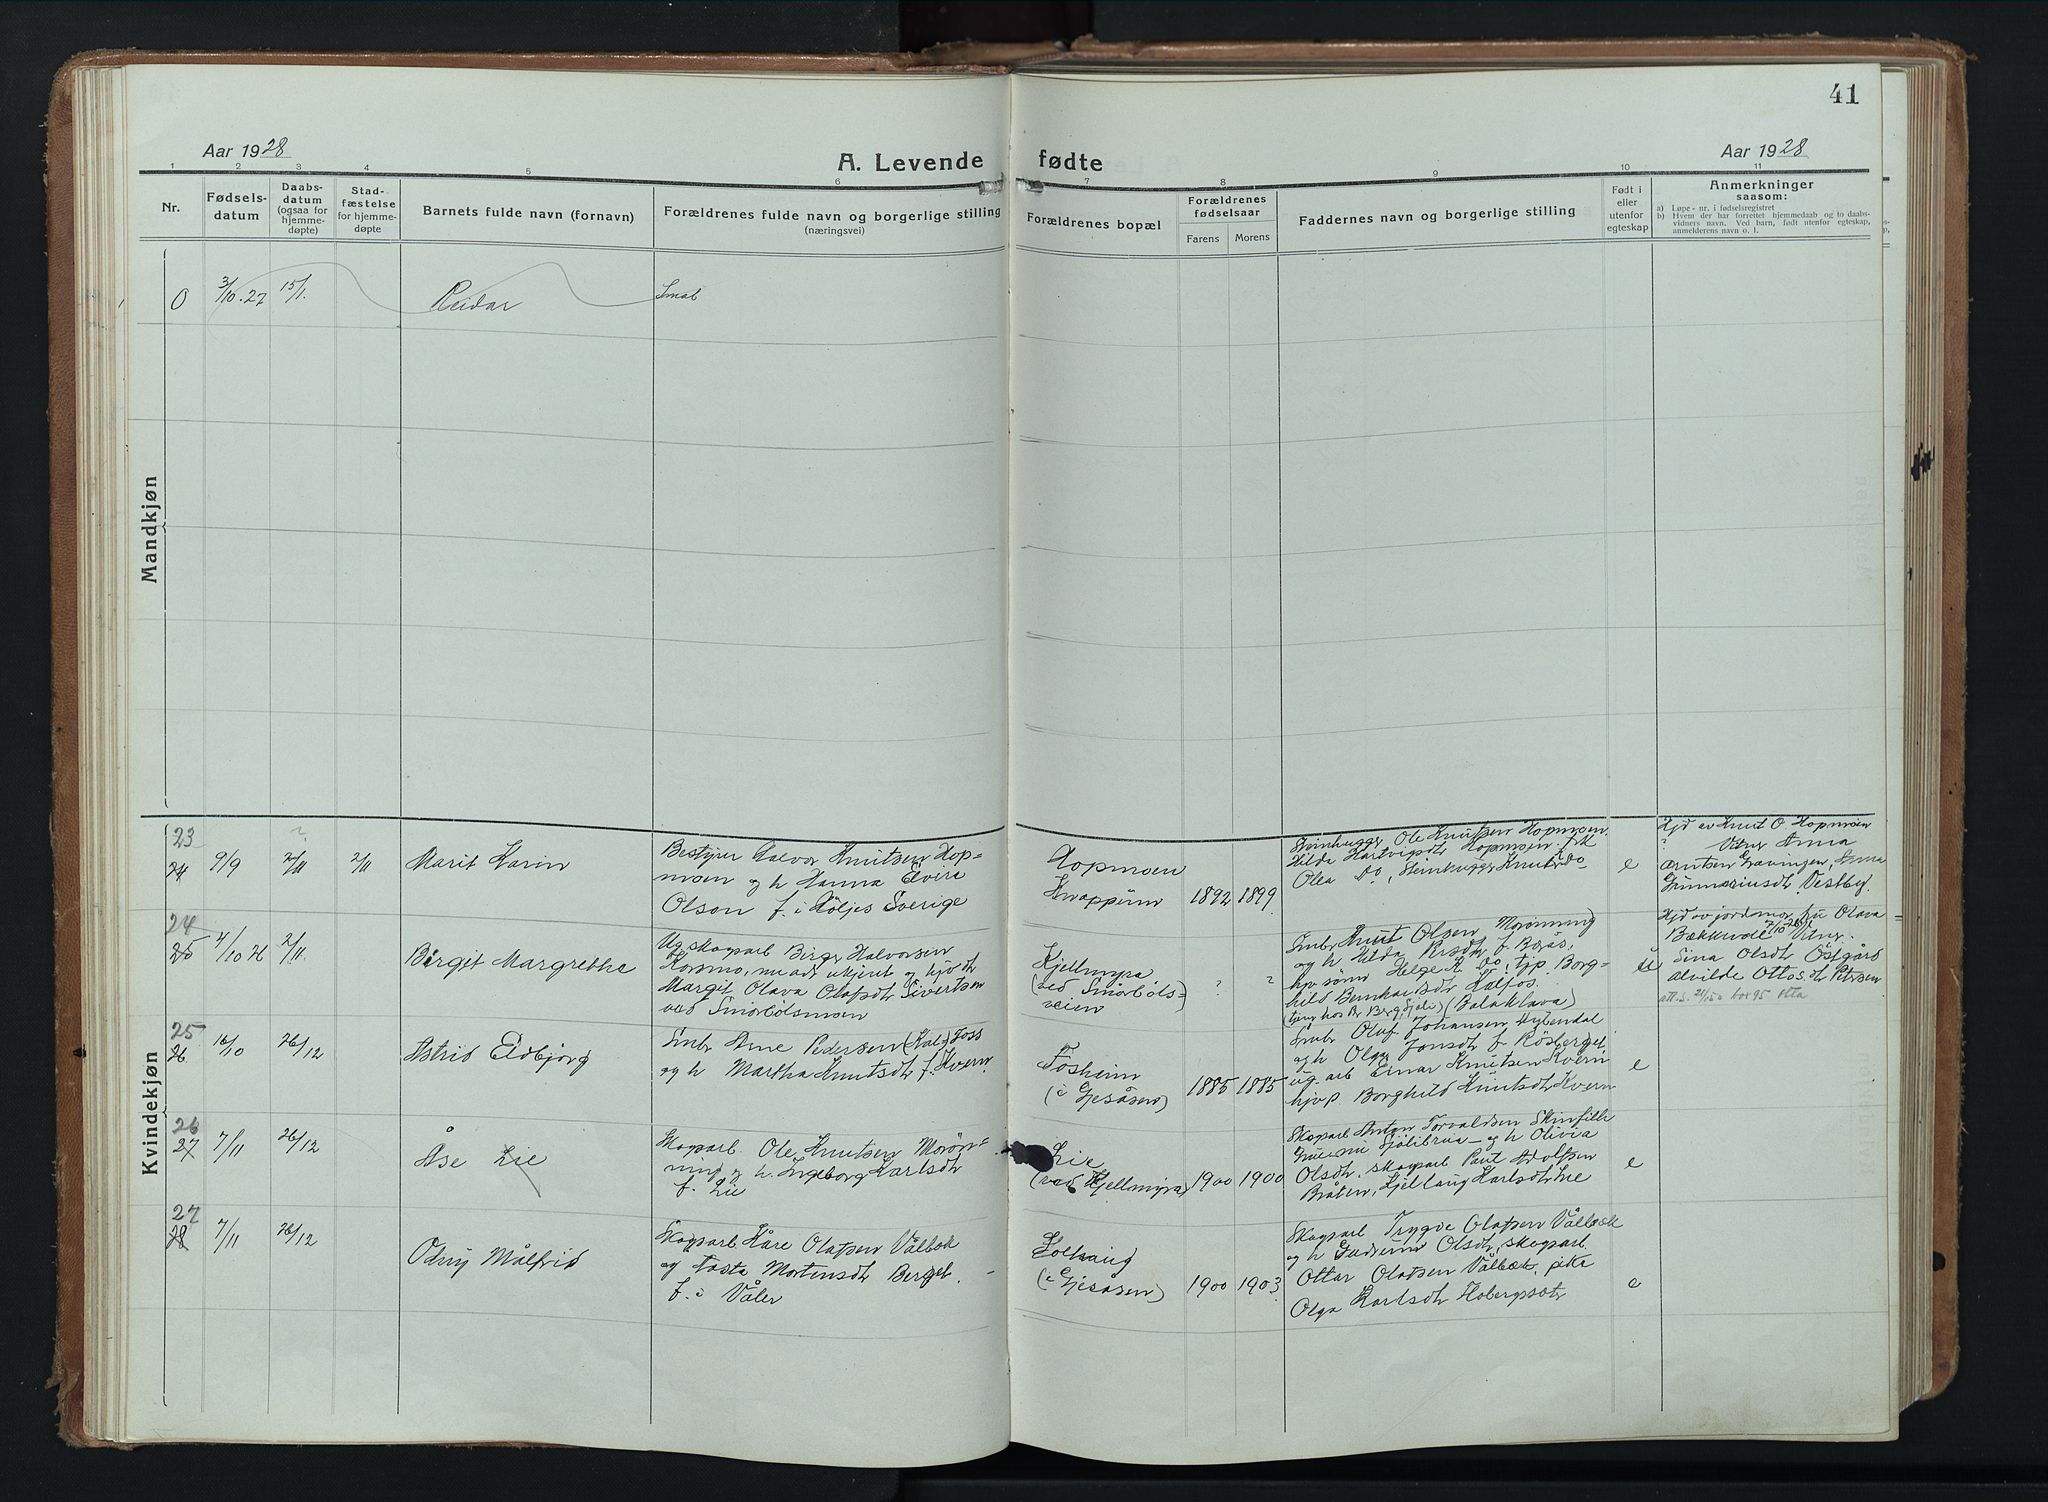 41
Aar 1928
A. Levende fødte
Aar 1928
1 2 3 4 5 6 7 8 9 10 11
Nr.
Fødsels-
datum
Daabs-
datum
(ogsaa for
hjemme-
døpte)
Stad-
fæstelse
for hjemme-
døpte
Barnets fulde navn (fornavn)
Forældrenes fulde navn og borgerlige stilling
(næringsvei)
Forældrenes bopæl
Forældrenes
fødselsaar
Farens Morens
Faddernes navn og borgerlige stilling
Født i
eller
utenfor
egteskap
Anmerkninger
saasom:
a) Løpe-nr. i fødselsregistret
b) Hvem der har forrettet hjemmedaab og to daabs-
vidners navn. Ved barn, født utenfor egteskap,
anmelderens navn o. l.
Mandkjøn
0 3/10.27 15/1. Reidar Smab
Kvindekjøn
23
24 9/9 2/11 2/11 Marit Karin
Bestyrer Halvor Knutsen Hop-
moen og h Hanna Elvira
Olson f. i Höljes Sverige
Hopmoen
1892 1899
Steinhugger Ole Knutsen Hopmoen.
Hilda Hartvigsdtr Hopmoen frk
Olea Do, Steinhugger Knut Do
e
Hjd av Knut O Hopmoen
Vitner Anna
Arntsen Grævingen, Anna
Gunnariusdtr Vestby.
24
25 4/10 26 2/11. Birgit Margrethe
Ug skogarb Birger Halvorsen
Margit Olava Olafsdtr Sivertsen
ved Smörbölsmoen
Kjellmyra
(ved Smörböls=
veien
? ?
Smbr Knut Olsen Morönning
og h Hilda Persdtr f. Borås,
hjv sönn Helge K Do, tjp. Borg-
hild Bernhardsdtr Kalfos.
(tjeng hos Br Berg, Sjöli) (Balaklava)
u
Hjd av jordmor fru Olava
Bækkevold 7/10 26. Vitner.
Sina Olsdtr Östgård
Alvilde Ottosdtr Petersen
25
26 16/10 26/12 Astrid Eldbjørg
Smbr Arne Pedersen (Kal) Foss
og h Martha Knutsdtr f. Kvern.
Fosheim
(i Gjesåsen)
1885 1885
Smbr Oluf Johansen Nybendal
og h Olga Jonsdtr f Rösberget
ug. arb Einar Knutsen Kvern
hjvp. Borghild Knutsdtr Kvern
e
26
27 7/11 26/12 Åse Lie
Skogarb. Ole Knutsen Morön=
ning og h. Ingeborg Karlsdtr
f. Lie
Lie
(ved Kjellmyra)
1900 1900
Skogarb Anton Torvaldsen Skinfille
Sjölibrua - og h Olivia
Olsdtr, skogarb Paul Adolfsen
Bråten, Kjellaug Karlsdtr Lie
e
27
28 7/11 26/12 Odny Målfrid
Skogarb. Kåre Olafsen Vålbæk
og Åasta Mortensdtr Berget.
f. i Våler
Solhaug
(i Gjesåsen)
1900 1903
Skogarb Trygve Olafsen Vålbæk
og h Gudrun Olsdtr, skogarb.
Ottar Olafsen Vålbæk, pike
Olga Karlsdtr Hobergsætr
e